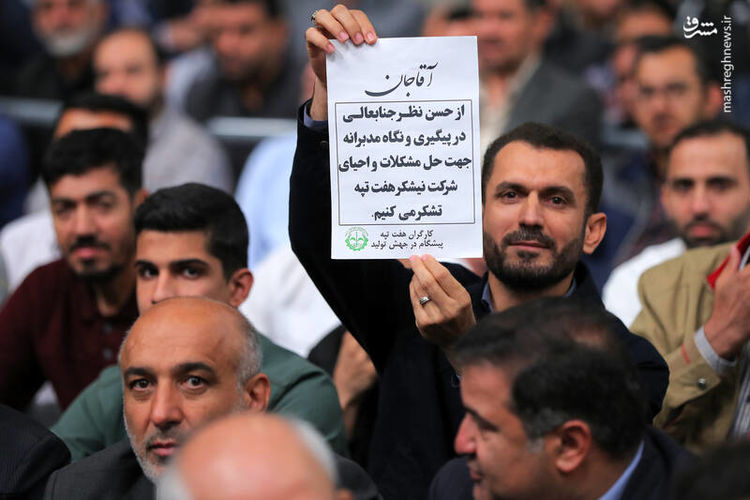 آقاجان
از حسن نظر جنابعالی
در پیگیری و نگاه مدبرانه
جهت حل مشکلات و احیای
شرکت نیشکر هفت تپه
تشکر می کنیم.
کارگران هفت تپه
پیشگام در جهش تولید
مشرق
mashreghnews.ir